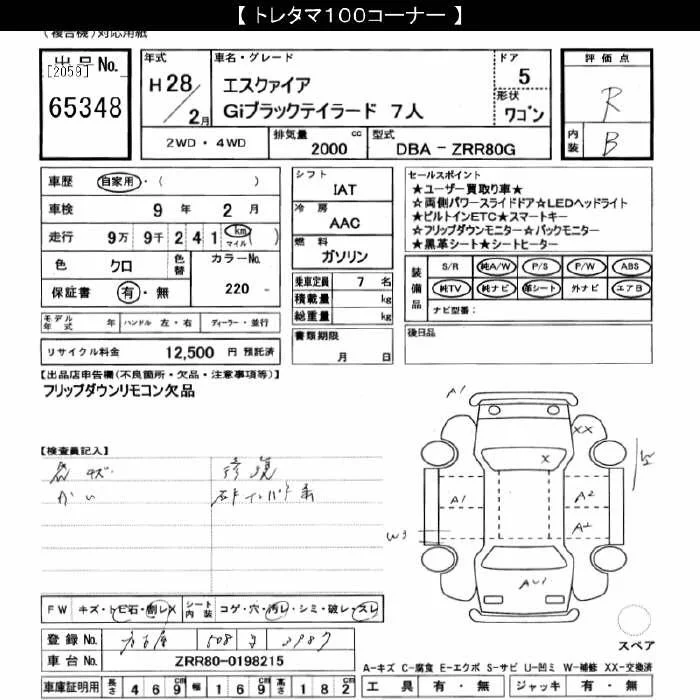 【 トレタマ１００コーナー 】
(複合機)対応用紙
出品No.
[2059]
65348
年式
H 28 / 2月
車名・グレード
エスクァイア
Giブラックテイラード 7人
ドア
5
形状
ワゴン
評価点
R
内装
B
2WD・4WD
排気量 2000 cc
型式 DBA － ZRR80G
車歴 自家用・( )
車検 9 年 2 月
走行 9万 9千 2 4 1 km マイル ( )
色 クロ 色替 カラーNo. 220 -
保証書 有・無
シフト
IAT
冷房
AAC
燃料
ガソリン
乗車定員 7 名
積載量 kg
総重量 kg
書類期限
月 日
セールスポイント
★ユーザー買取り車★
☆両側パワースライドドア☆LEDヘッドライト
★ビルトインETC★スマートキー
☆フリップダウンモニター☆バックモニター
★黒革シート★シートヒーター
装備品
S/R 純A/W P/S P/W ABS
純TV 純ナビ 革シート 外ナビ エアB
ナビ型番：
後日品
モデル年式 年 ハンドル 左・右 ディーラー・並行
リサイクル料金 12,500 円 預託済
【出品店申告欄(不良箇所・欠品・注意事項等)】
フリップダウンリモコン欠品
【検査員記入】
キズ
修復
A1
XX
X
A1
A2
A2
W3
FW キズ・トビ石・割レ・X シート内装 コゲ・穴・汚レ・シミ・破レ・スレ
登録No. 名古屋 508
車台No. ZRR80-0198215
車庫証明用 長さ 4 6 9 cm 幅 1 6 9 cm 高さ 1 8 2 cm
スペア
A－キズ C－腐食 E－エクボ S－サビ U－凹ミ W－補修 XX－交換済
工具 有・無 ジャッキ 有・無